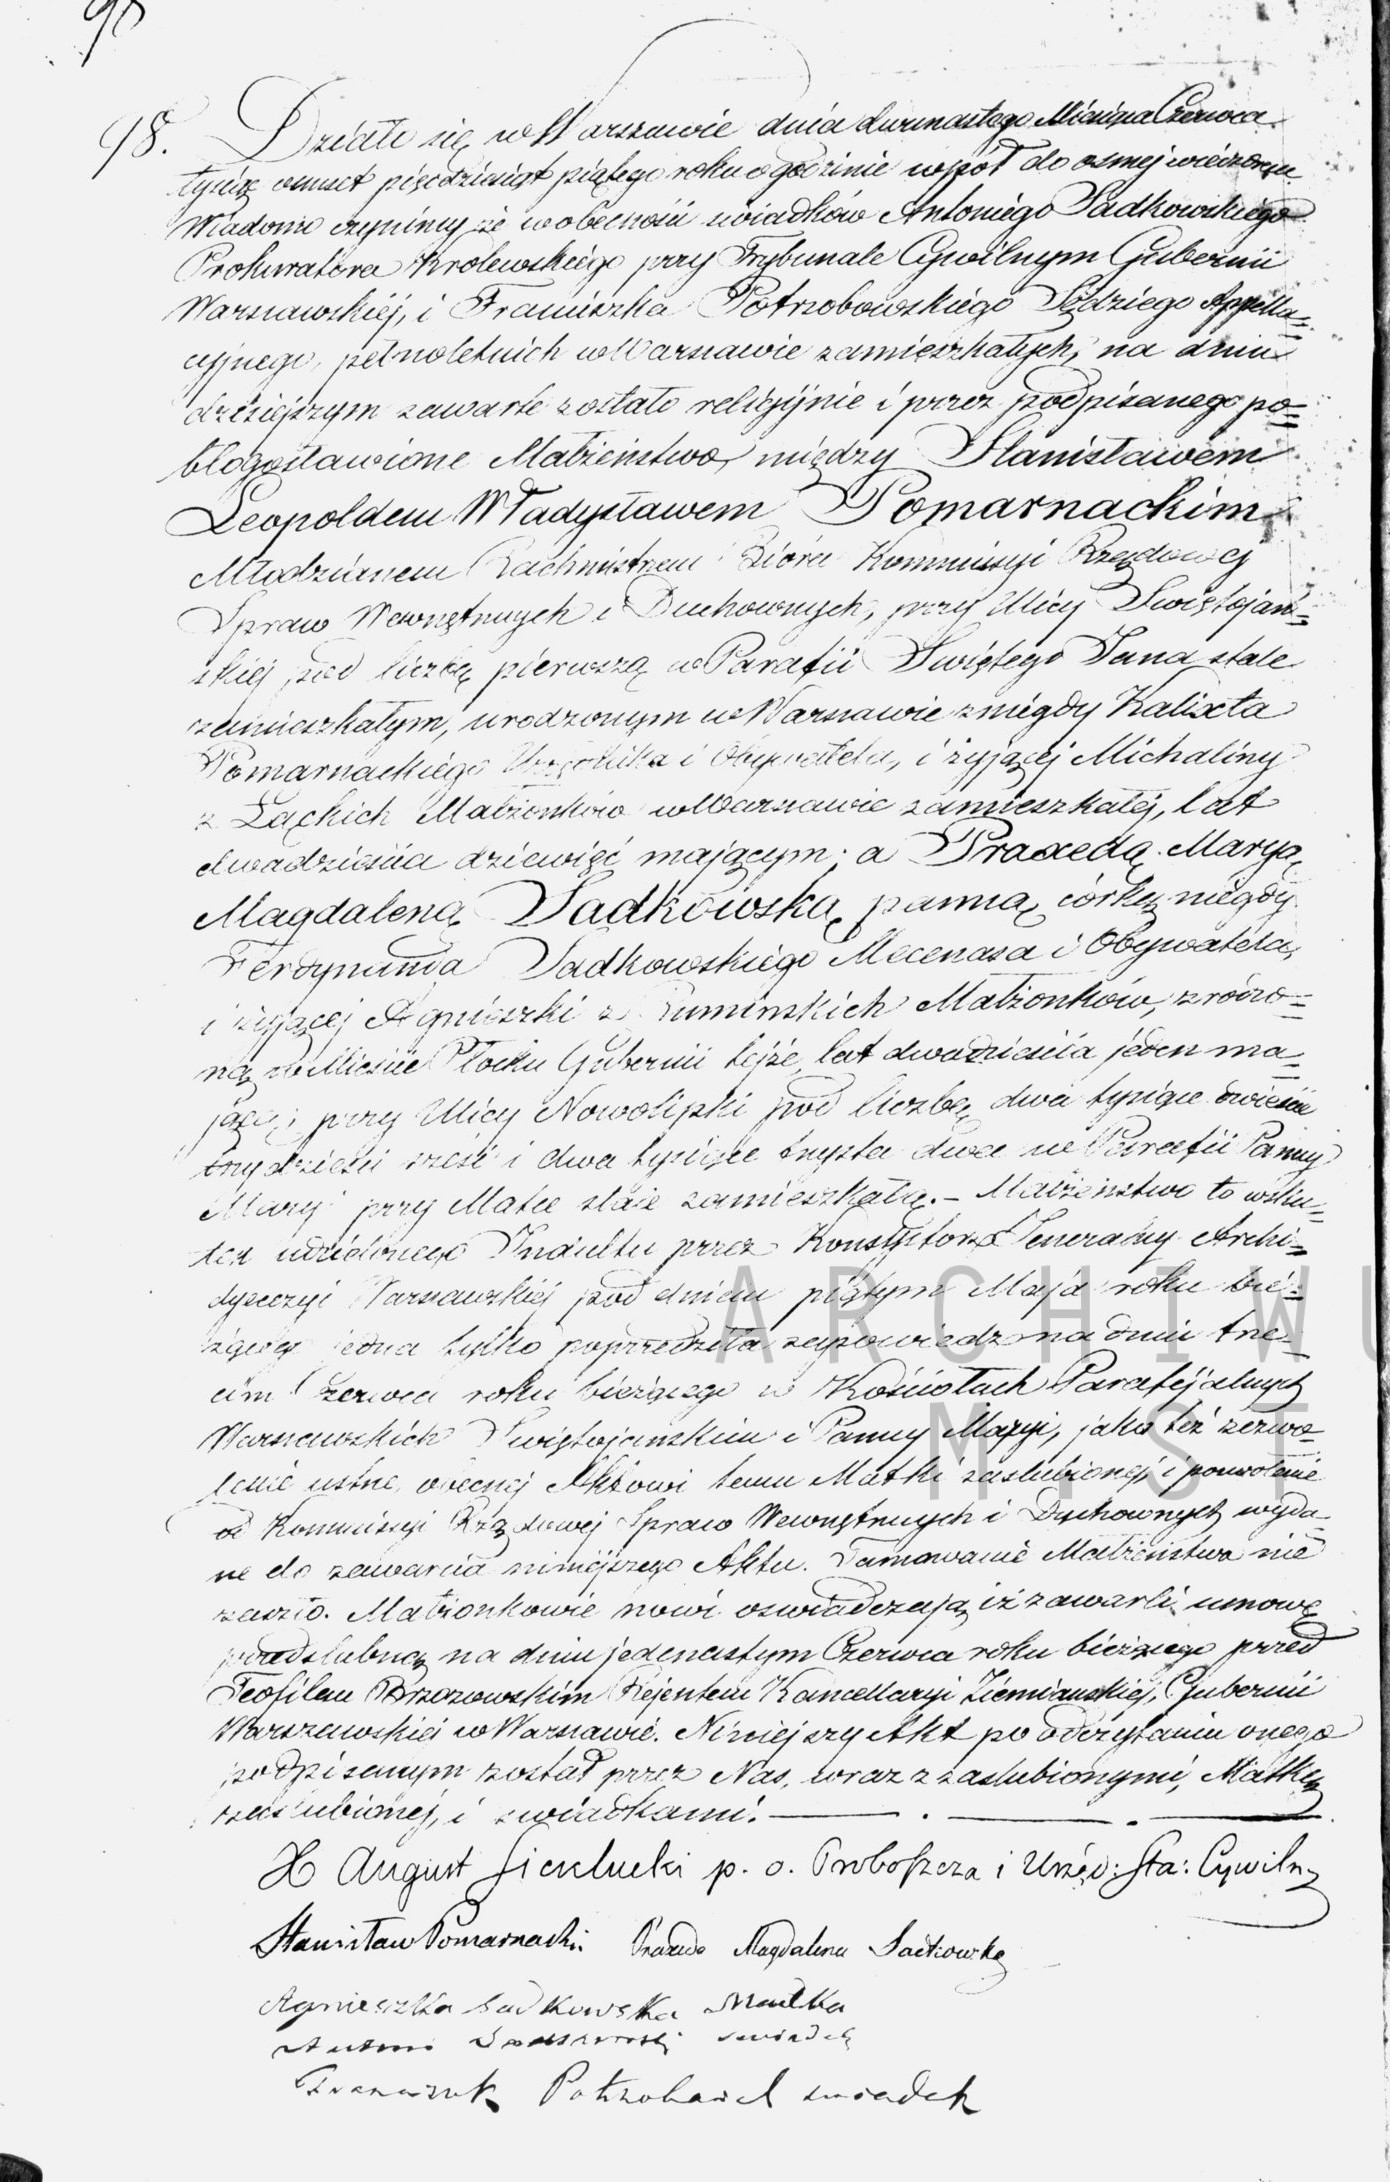 98.
98. Działo się w Warszawie dnia dwunastego Miesiąca Czerwca
tysiąc ośmset pięćdziesiąt piątego roku o godzinie wpół do osmej wieczorem
Wiadomo czynimy że w obecności swiadków Antoniego Sadkowskiego
Prokuratora Królewskiego przy Trybunale Cywilnym Gubernii
Warszawskiéj, i Franciszka Potrzobowskiego Sędziego Appella=
cyjnego, pełnoletnich w Warszawie zamieszkałych, na dniu
dzisiejszym zawarte zostało religijnie i przez podpisanego po=
błogosławione Małżeństwo, między Stanisławem
Leopoldem Władysławem Pomarnackim
Młodzianem Rachmistrzem Bióra Kommissyi Rządowej
Spraw Wewnętrznych i Duchownych, przy Ulicy Swiętojań=
skiej pod liczbą pierwszą w Parafii Swiętego Jana stale
zamieszkałym, urodzonym w Warszawie z niegdy Kalixta
Pomarnackiego Urzędnika i Obywatela, i żyjącéj Michaliny
z Łąckich Małżonków w Warszawie zamieszkałéj, lat
dwadzieścia dziewięć mającym; a Praxedą Maryą
Magdaleną Sadkowską, panną, córką niegdy
Ferdynanda Sadkowskiego Mecenasa i Obywatela,
i żyjącej Agnieszki z Rumińskich Małżonków, zrodzo=
ną w Mieście Płocku Gubernii tejże, lat dwadzieścia jeden ma=
jącą; przy Ulicy Nowolipki pod liczbą dwa tysiące dwieście
trzydzieści sześć i dwa tysiące trzysta dwa w Parafii Panny
Maryi przy Matce stale zamieszkałą. – Małżeństwo to wsku=
tek udzielonego Indultu przez Konsystorz Jeneralny Archi=
dyecezyi Warszawskiéj pod dniem piątym Maja roku bie=
żącego jedna tylko poprzedziła zapowiedź na dniu trze=
cim Czerwca roku bieżącego w Kościołach Parafijalnych
Warszawskich Swiętojańskim i Panny Maryi, jako też zezwo=
lenie ustne, obecnej Aktowi temu Matki zaslubionej, i pozwolenie
od Kommissyi Rządowej Spraw Wewnętrznych i Duchownych wyda=
ne do zawarcia niniejszego Aktu. Tamowanie Małżeństwa nie
zaszło. Małżonkowie nowi oswiadczają iż zawarli umowę
przedslubną na dniu jedenastym Czerwca roku bieżącego przed
Teofilem Brzozowskim Rejentem Kancellaryi Ziemiańskiéj, Gubernii
Warszawskiej w Warszawie. Niniejszy Akt po odczytaniu onego
podpisanym został przez Nas, wraz z zaslubionymi, Matką
zaslubionej, i swiadkami.
X August p. o. Proboszcza i Urzęd: Sta: Cywiln
Stanisław Pomarnacki Praxeda Magdalena Sadkowska
Agnieszka Sadkowska Matka
Antoni Sadkowski swiadek
Franciszek Potrzobowski swiadek
ARCHIWU
M ST